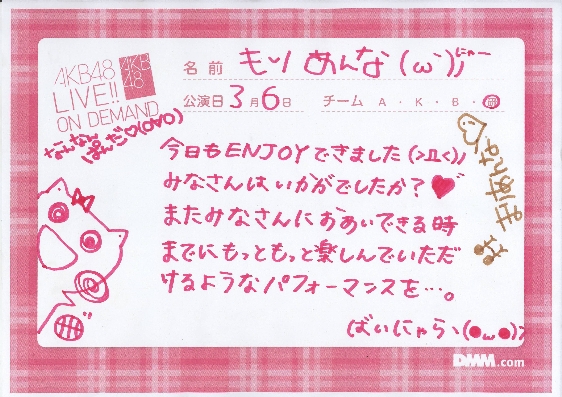 AKB48
LIVE!!
ON DEMAND
AKB
48
名前 もり あんな (´ω`)ﾉ にゃー
公演日 3月6日 チーム A・K・B・研
なんなん
ぱんだ♡(OVO)
今日もENJOYできました(>Д<)ﾉ
みなさんはいかがでしたか?♥
またみなさんにおあいできる時
までにもっともっと楽しんでいただ
けるようなパフォーマンスを…。
ばいにゃらヽ(●ω●)ﾉ
DMM.com